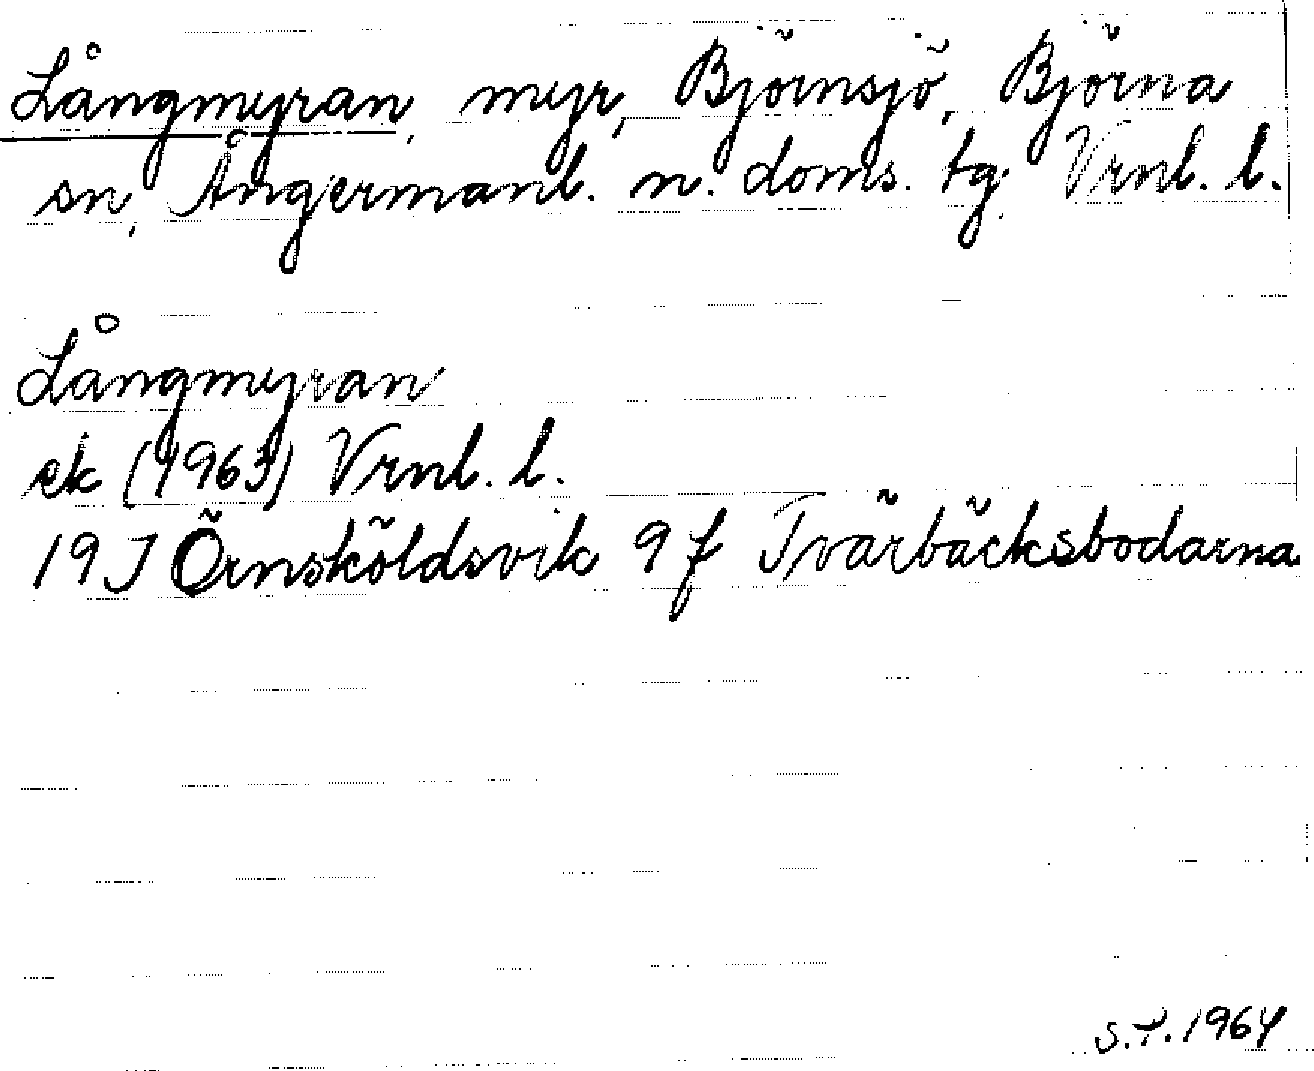 Långmyran, myr, Björnsjö, Björna
sn, Ångermanl. n. doms. tg. Vrnl. l.
Långmyran
ek (1963) Vrnl. l.
19 J Örnsköldsvik 9 f Tvärbäcksbodarna
S.T. 1964